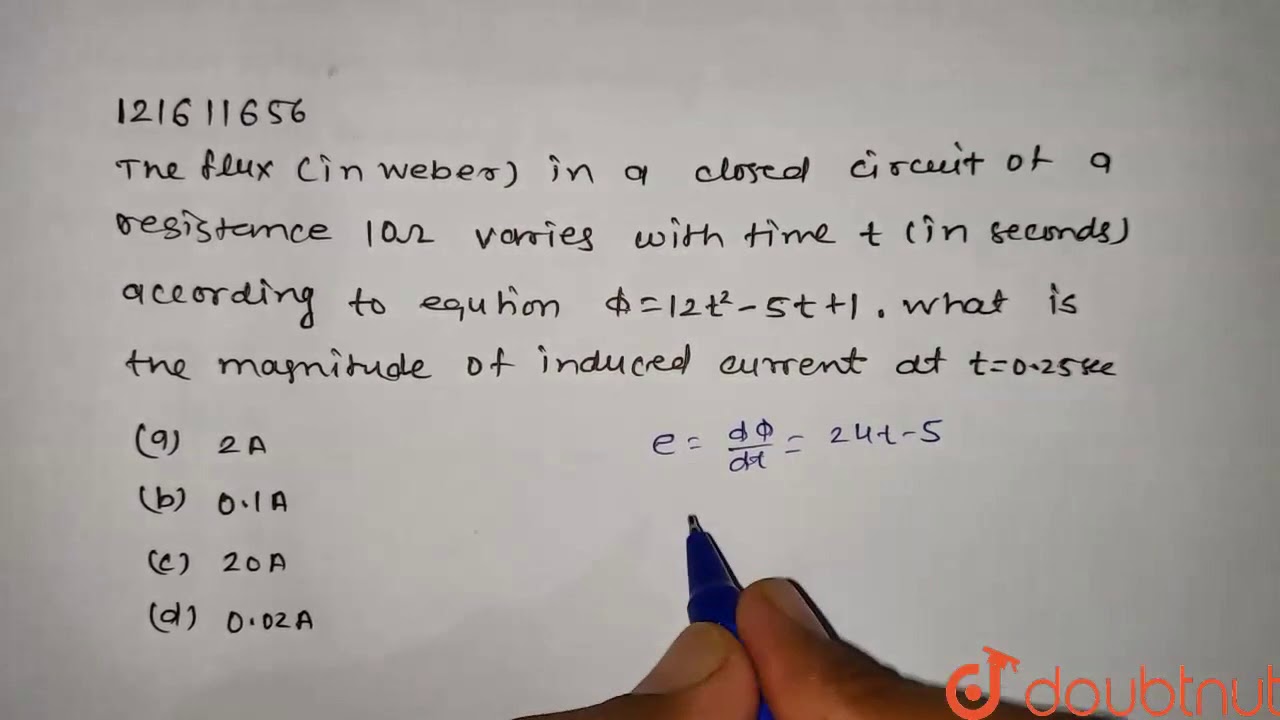 121611656
The flux (in weber) in a closed circuit of a
resistance 10Ω varries with time t (in seconds)
according to eqution ϕ=12t²-5t+1. what is
the magnitude of induced current at t=0.25sec
(a) 2A
(b) 0.1A
(c) 20A
(d) 0.02A
e = dϕ/dt = 24t-5
doubtnut